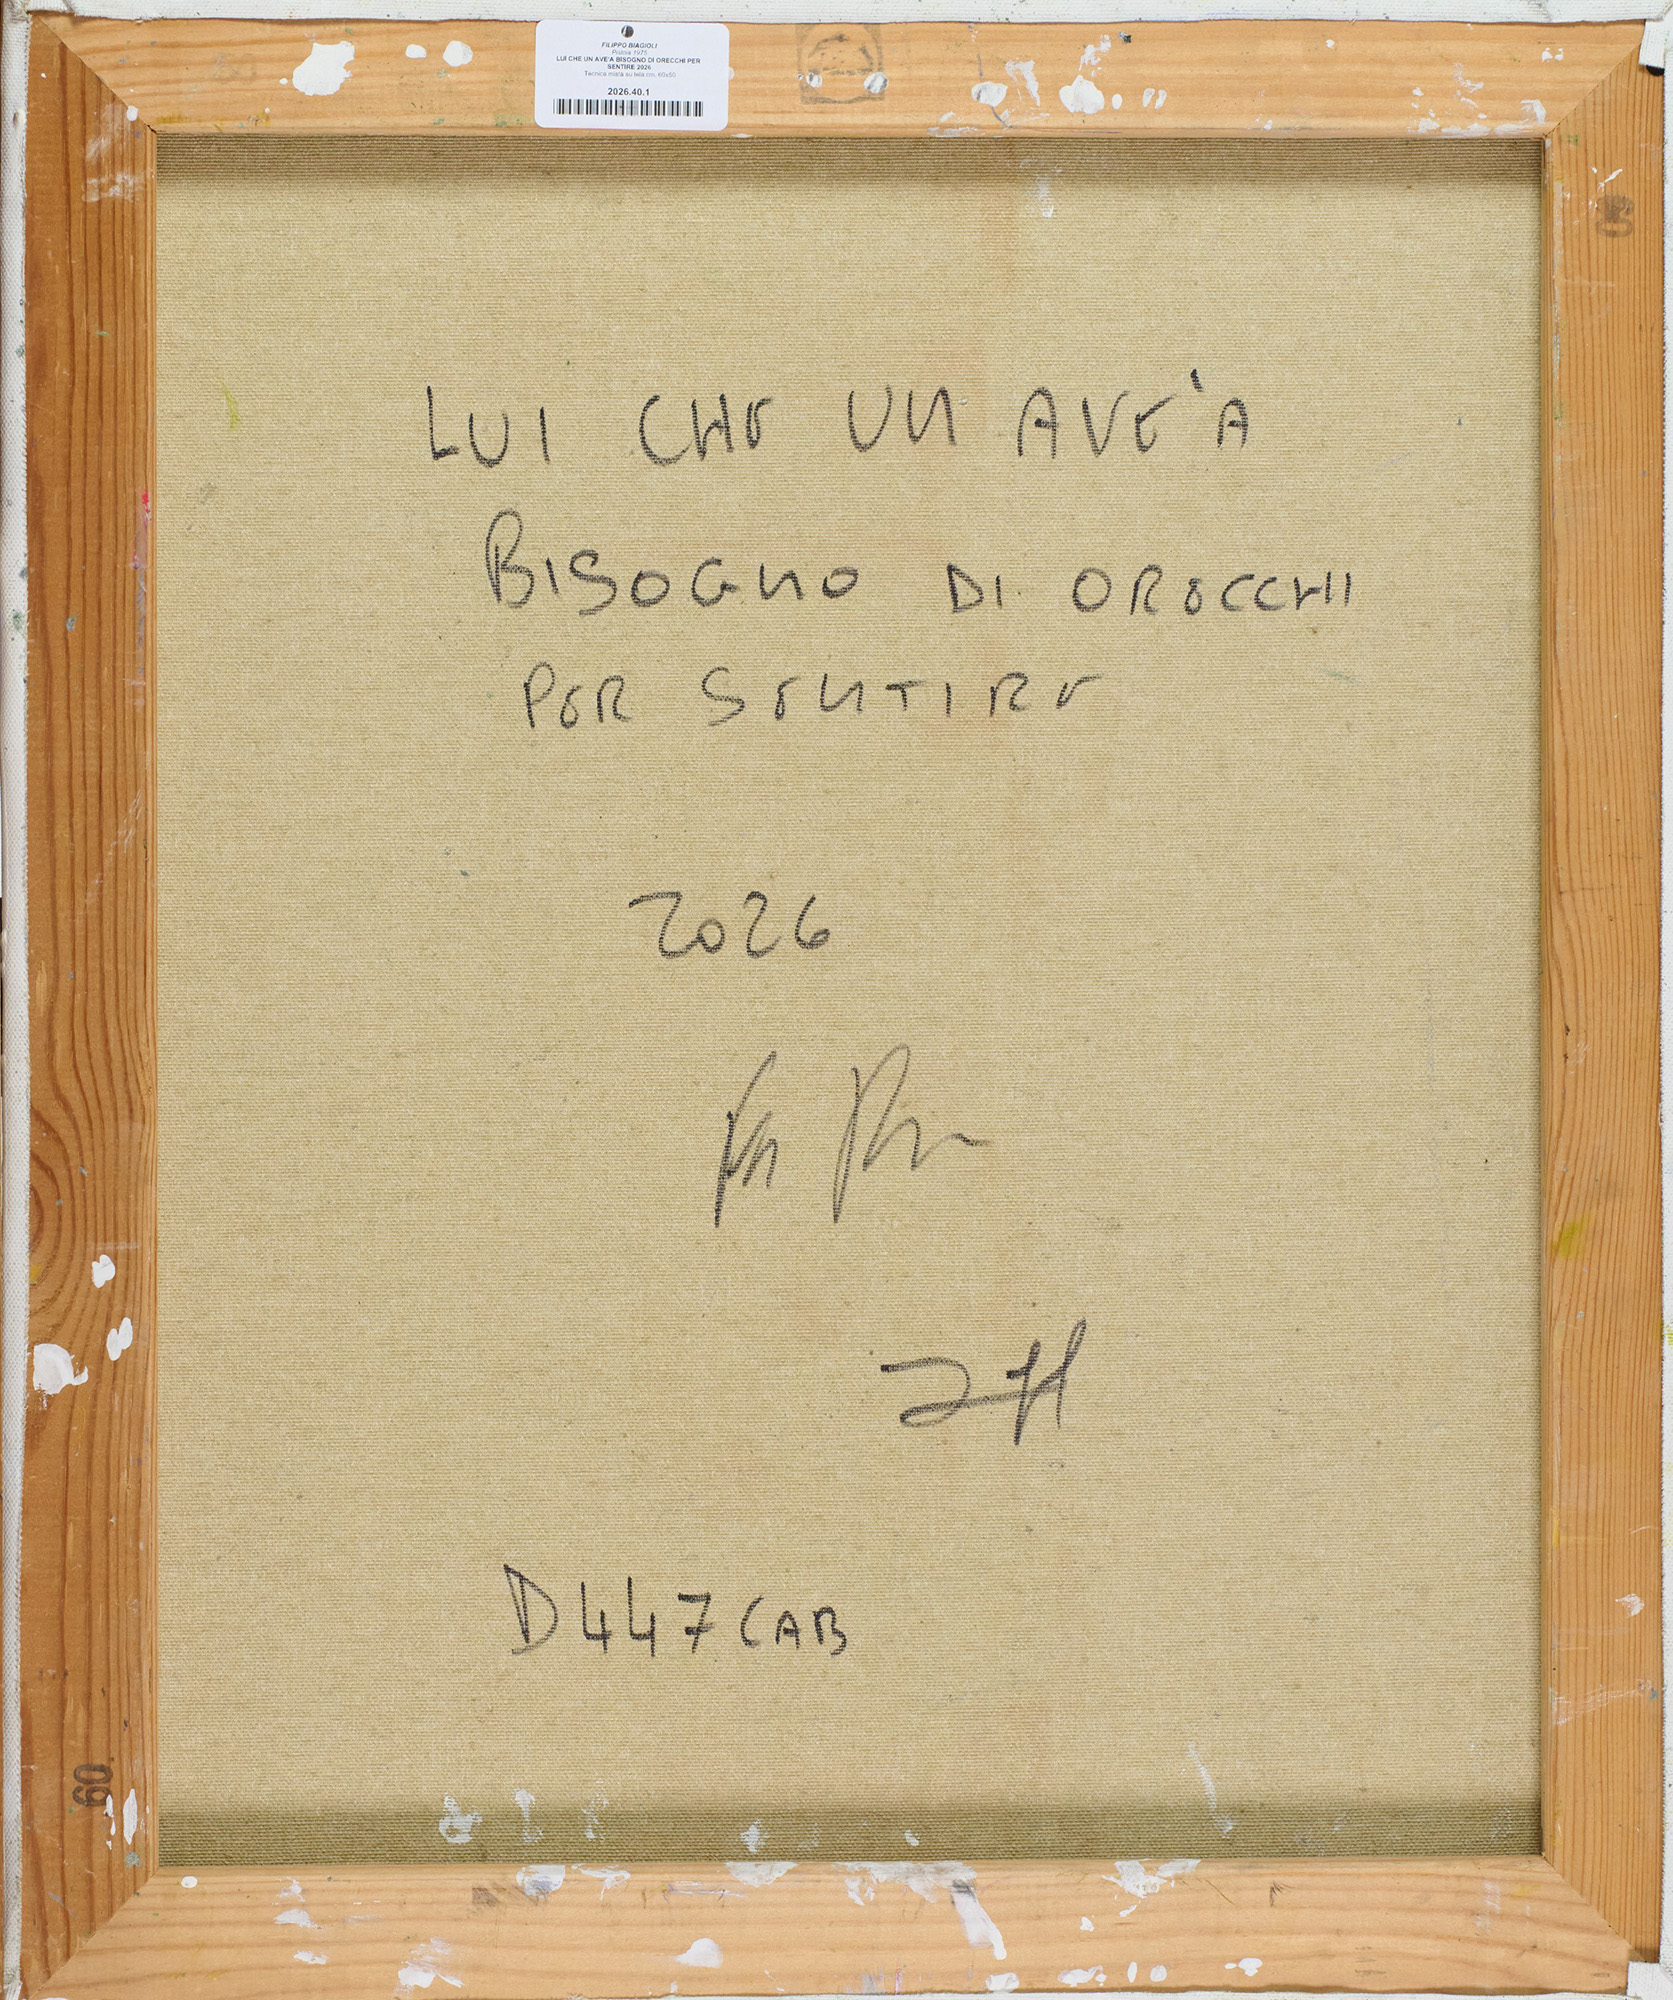 FILIPPO BIAGIOLI
Pistoia 1975
LUI CHE UN AVE'A BISOGNO DI ORECCHI PER
SENTIRE 2026
Tecnica mista su tela cm. 60x50
2026.40.1
LUI CHE UN AVE'A
BISOGNO DI ORECCHI
PER SENTIRE
2026
D447CAB
60